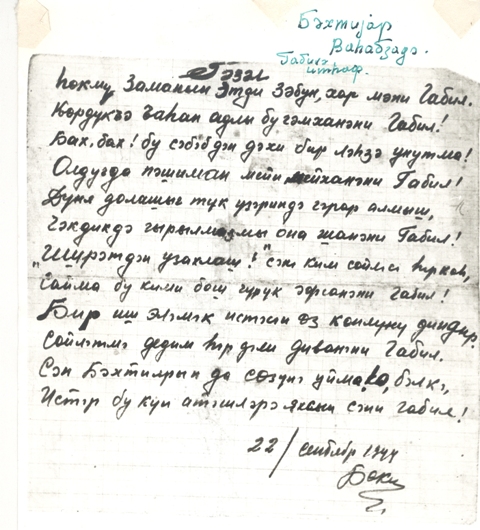 Бәхтијар
Ваһабзадә.
Габилә
итһаф.
Гәзәл
Һөкмү Заманын Этди Зәбун, хар мәни Габил.
Көрдүкҹә ҹаһан адлы бу гәмханәни Габил!
Бах, бах! бу сәбәбдән дәхи бир ләһзә унутма!
Олдугда пәшиман мейи мейханәни Габил!
Дүня долашыг түк үзәриндә гәрар алмыш,
Чәкдикдә гырылмазмы она шанәни Габил!
"Ширәтдән узаклаш!" сәнә ким сөйләсә
Сайма бу кими бош гуруғ әфсанәни Габил!
Бир иш әләмәк истәсән өз көнлүнү диндир
Сөйләтмә дедим һәр дәли диванәни Габил.
Сән Бәхтиярын да сөзүнә уйма ки, бәлкә,
Истәр бу күн атәшләрә яхсын сәни Габил!
22/ сентябр 1944